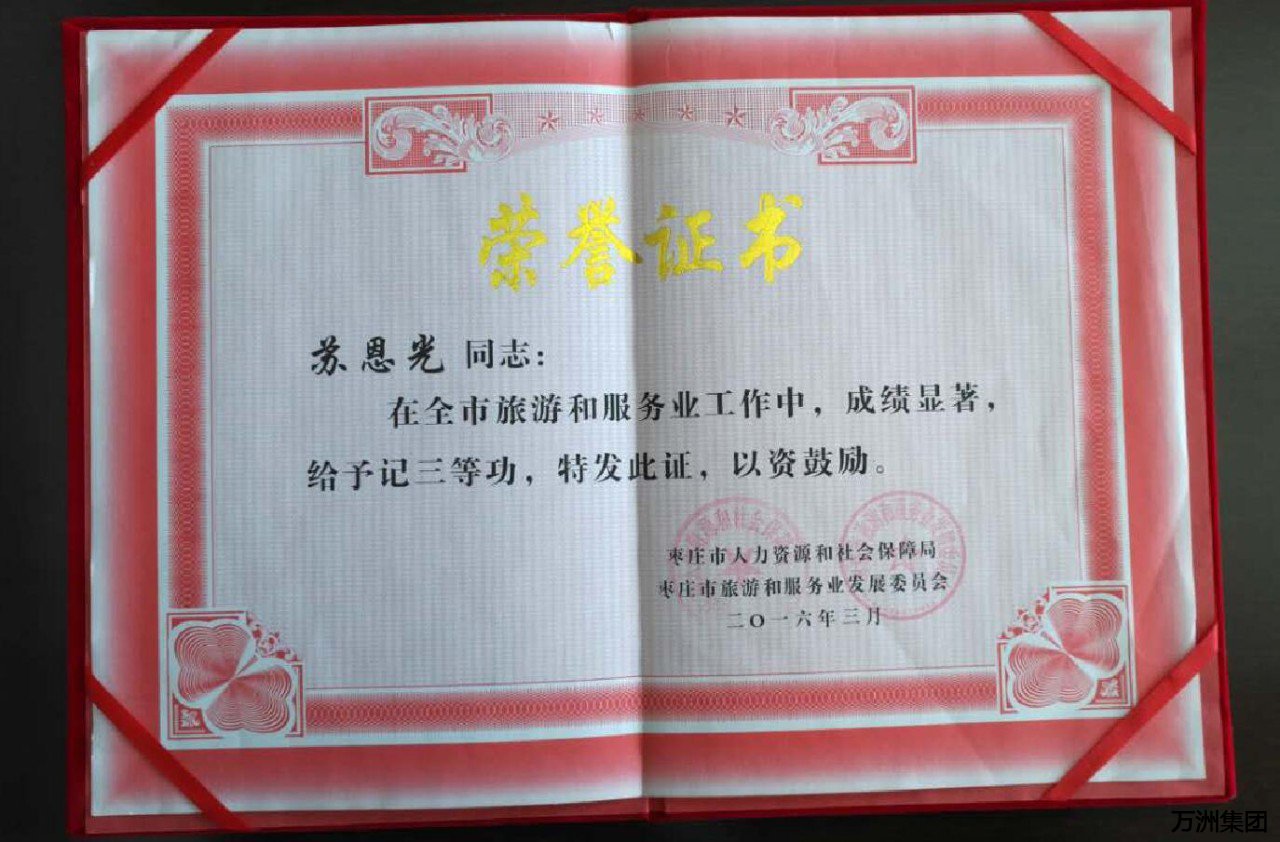 荣誉证书
苏恩光 同志：
在全市旅游和服务业工作中，成绩显著，
给予记三等功，特发此证，以资鼓励。
枣庄市人力资源和社会保障局
枣庄市旅游和服务业发展委员会
二〇一六年三月
万洲集团